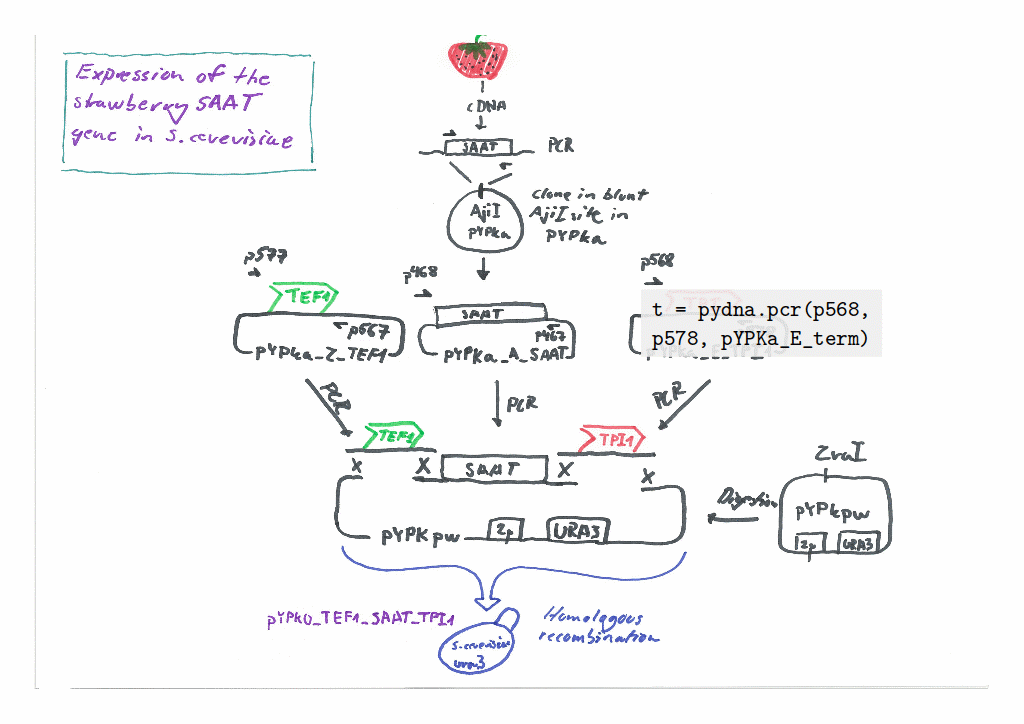 Expression of the
stawberry SAAT
gene in S. cerevisiae
cDNA
SAAT
PCR
AjiI
pYPKa
Clone in blunt
AjiI site in
pYPKa
p577
TEF1
p567
pYPKa_Z_TEF1
p468
SAAT
p467
pYPKa_A_SAAT
p568
t = pydna.pcr(p568,
p578, pYPKa_E_term)
PCR
PCR
PCR
TEF1
TPI1
X
X
SAAT
X
X
pYPKpw
2µ
URA3
Digestion
ZraI
pYPKpw
2µ
URA3
pYPK0_TEF1_SAAT_TPI1
Homologous
recombination
S. cerevisiae
ura3